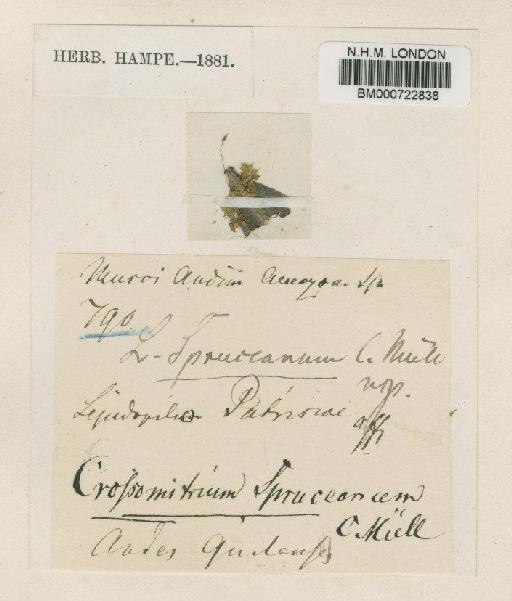 HERB. HAMPE.—1881.
N.H.M. LONDON
BM000722838
Musci
790
L. Spruceanum C. Müll
n. sp.
Lepidopilo Patrisiae
affi
Crossomitrium Spruceanum
C. Müll
Andes Quitenses